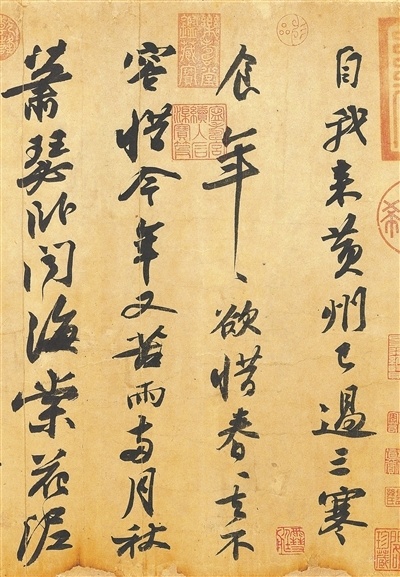 自我来黄州已過三寒
食年〻欲惜春〻去不
容惜今年又苦雨兩月秋
蕭瑟卧聞海棠花泥
希